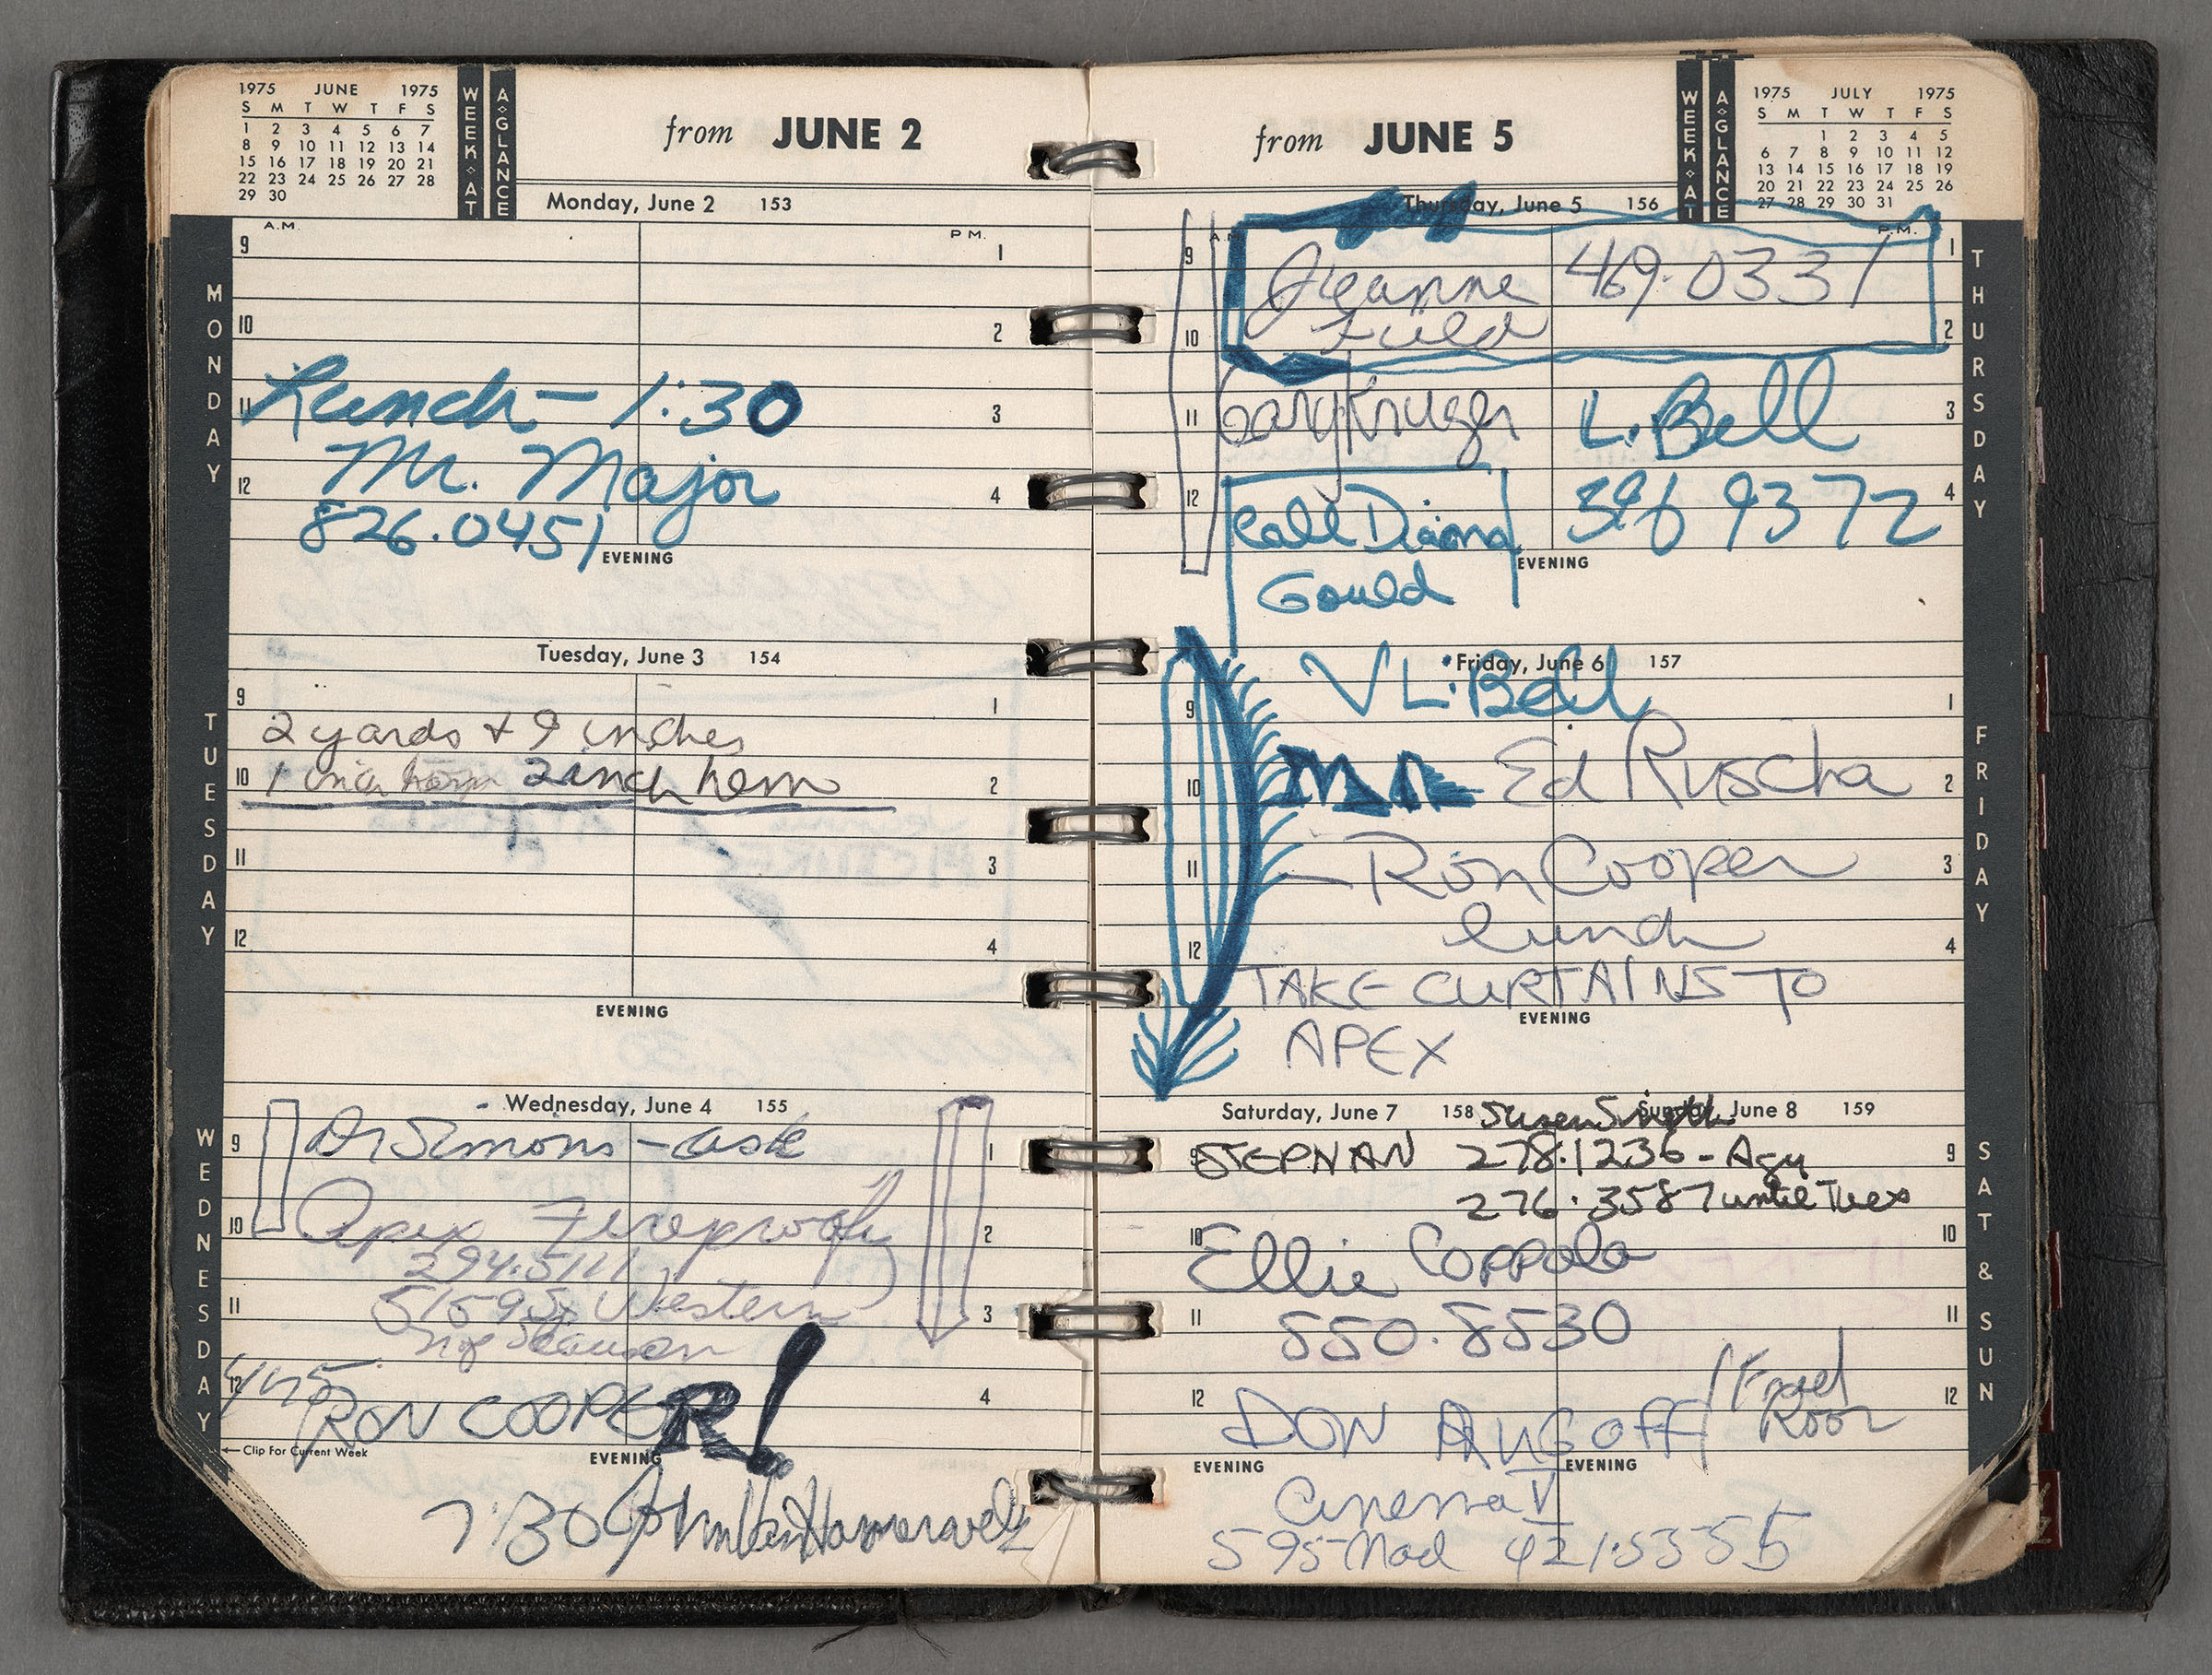 1975 JUNE 1975
S M T W T F S
1 2 3 4 5 6 7
8 9 10 11 12 13 14
15 16 17 18 19 20 21
22 23 24 25 26 27 28
29 30
WEEK AT A GLANCE
from JUNE 2
Monday, June 2 153
MONDAY
A.M. P.M.
9 1
10 2
11 3
Lunch - 1:30
Mr. Major
12 4
826.0451
EVENING
Tuesday, June 3 154
TUESDAY
9 1
2 yards + 9 inches
10 2
1 inch hem 2 inch hem
11 3
12 4
EVENING
Wednesday, June 4 155
WEDNESDAY
9 1
Dr Simons - ask
10 2
Apex
294.5111
11 3
Western
12 4
RON COOPER!
←Clip For Current Week
EVENING
7:30 John Van Hamersveld
WEEK AT A GLANCE
1975 JULY 1975
S M T W T F S
1 2 3 4 5
6 7 8 9 10 11 12
13 14 15 16 17 18 19
20 21 22 23 24 25 26
27 28 29 30 31
from JUNE 5
Thursday, June 5 156
THURSDAY
P.M.
9 1
Jeanne 469.0331
Fuld
10 2
11 3
Gary Kruger L. Bell
12 4
Call Diana 396 9372
EVENING
Gould
Friday, June 6 157
FRIDAY
L. Bell
9 1
10 2
Ed Ruscha
11 3
- Ron Cooper
lunch
12 4
TAKE CURTAINS TO
EVENING
APEX
Saturday, June 7 158 Sunday, June 8 159
SAT & SUN
Susan Smith
9 9
STEPHAN 278.1236 - Agy
276.3587 until Tues
10 10
Ellie Coppola
11 11
550.8530
12 12
DON RUGOFF
EVENING EVENING
Cinema V
595 Mad 421.5555